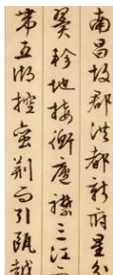 南昌故郡洪都新府星分
翼軫地接衡廬襟三江而
帶五湖控蠻荊而引甌越